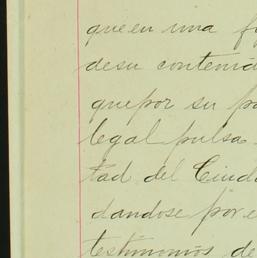 que en una
de su contenid
que por su p
legal pulsa
tad del Ciud
dandose por e
testimonios de